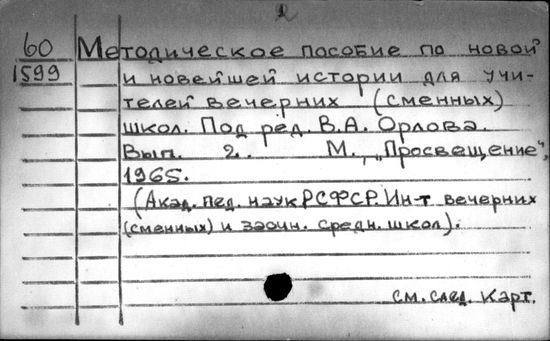 2
60 Методическое пособие по новой
1599 и новейшей истории для учи-
телей вечерних (сменных)
школ. Под ред. В.А. Орлова.
Вып. 2. М., „Просвещение",
1965.
(Акад. пед. наук РСФСР. Ин-т вечерних
(сменных) и заочн. средн. школ).
см. след. карт.